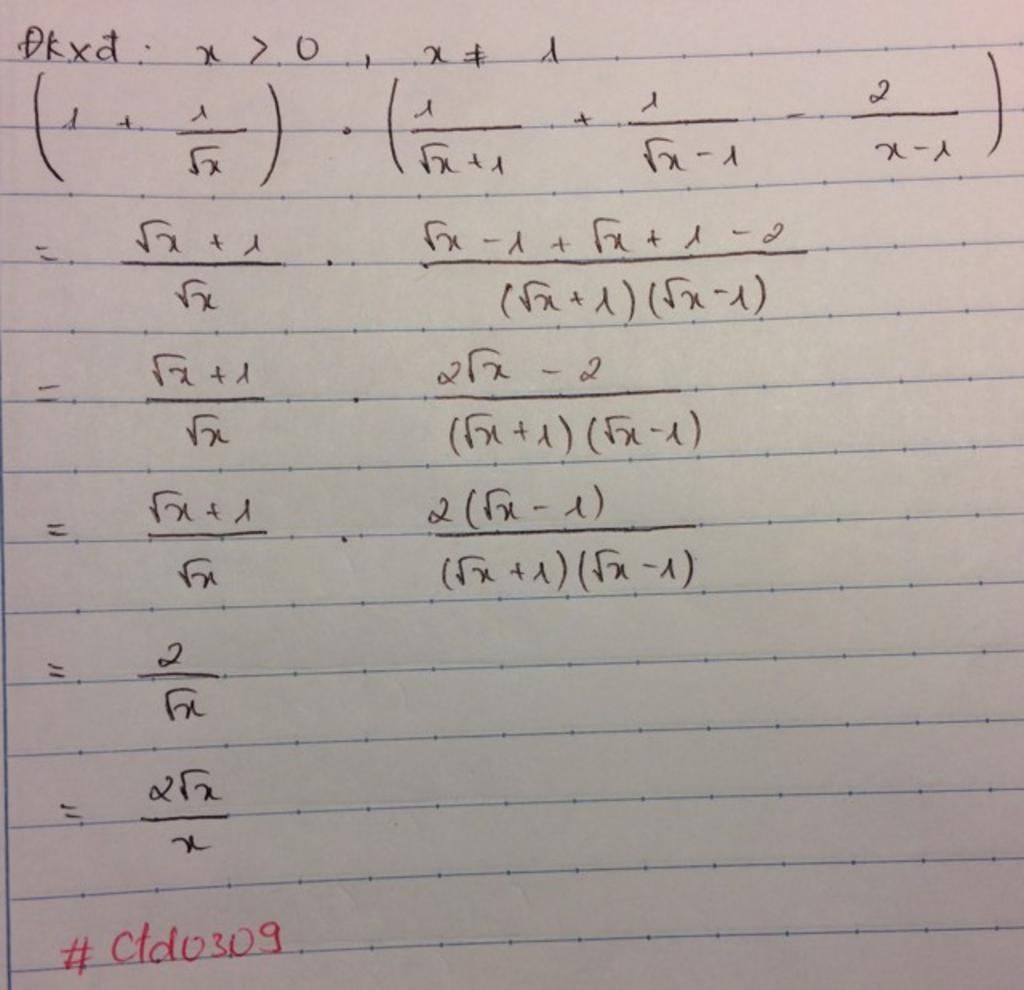 ĐKXĐ: x > 0, x ≠ 1
(1 + 1/√x) · (1/(√x + 1) + 1/(√x - 1) - 2/(x - 1))
= (√x + 1)/√x · (√x - 1 + √x + 1 - 2)/((√x + 1)(√x - 1))
= (√x + 1)/√x · (2√x - 2)/((√x + 1)(√x - 1))
= (√x + 1)/√x · 2(√x - 1)/((√x + 1)(√x - 1))
= 2/√x
= 2√x/x
# Ctd0309